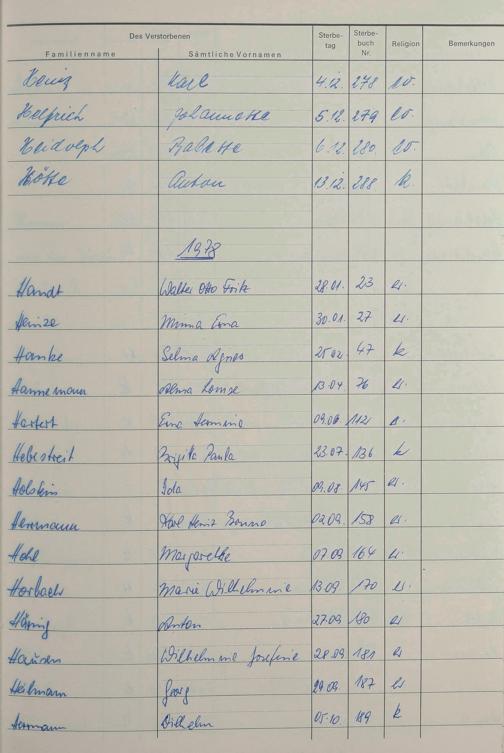 Des Verstorbenen Sterbe- Sterbe-
Familienname Sämtliche Vornamen tag buch Nr. Religion Bemerkungen
Heinz Karl 4.12. 278 ev.
Helfrich Johannette 5.12. 279 ev.
Heidolph Babette 6.12. 280 ev.
Hötte Anton 13.12. 288 k
1978
Handt Walter Otto Fritz 28.01. 23 ev.
Heinze Minna Erna 30.01. 27 ev.
Hanke Selma Agnes 25.02. 47 k
Hannemann Louise 13.04 76 ev.
Hartert Erna Hermine 09.06 112
Hebestreit Brigitta Paula 23.07. 136 k
Holstein Ida 09.08 145 ev.
Herrmann Karl Heinz Benno 02.09. 158 ev.
Hohl Margarethe 07.09 164 ev.
Horbach Marie Wilhelmine 13.09 170 ev.
Anton 27.09 180 ev
Hausen Wilhelmine Josefine 28.09 181 ev
Heilmann Georg 29.09 187 ev
Hermann Wilhelm 05.10 189 k